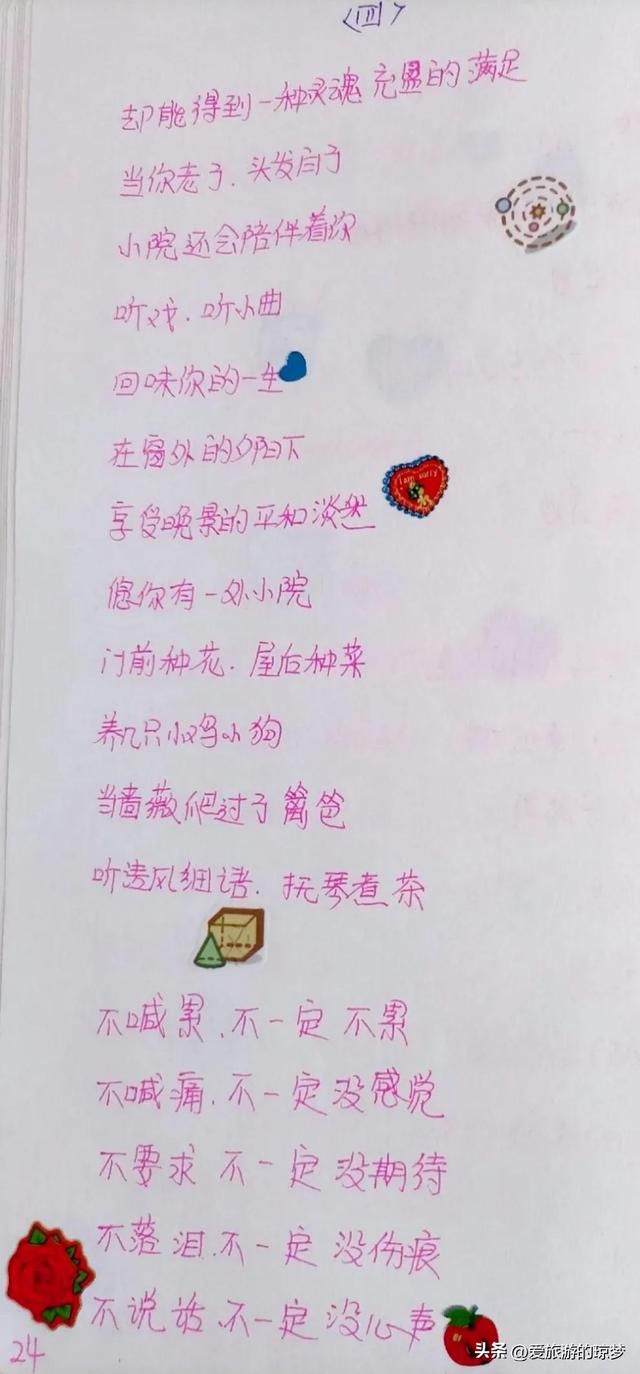 〈四〉
却能得到一种灵魂充盈的满足
当你老了.头发白了
小院还会陪伴着你
听戏.听小曲
回味你的一生
在窗外的夕阳下
享受晚景的平和淡然
I am sorry
愿你有一处小院
门前种花.屋后种菜
养几只小鸡小狗
当蔷薇爬过了篱笆
听清风细语.抚琴煮茶
不喊累.不一定不累
不喊痛.不一定没感觉
不要求 不一定没期待
不落泪.不一定没伤痕
不说话.不一定没心声
24
头条 @爱旅游的琼梦